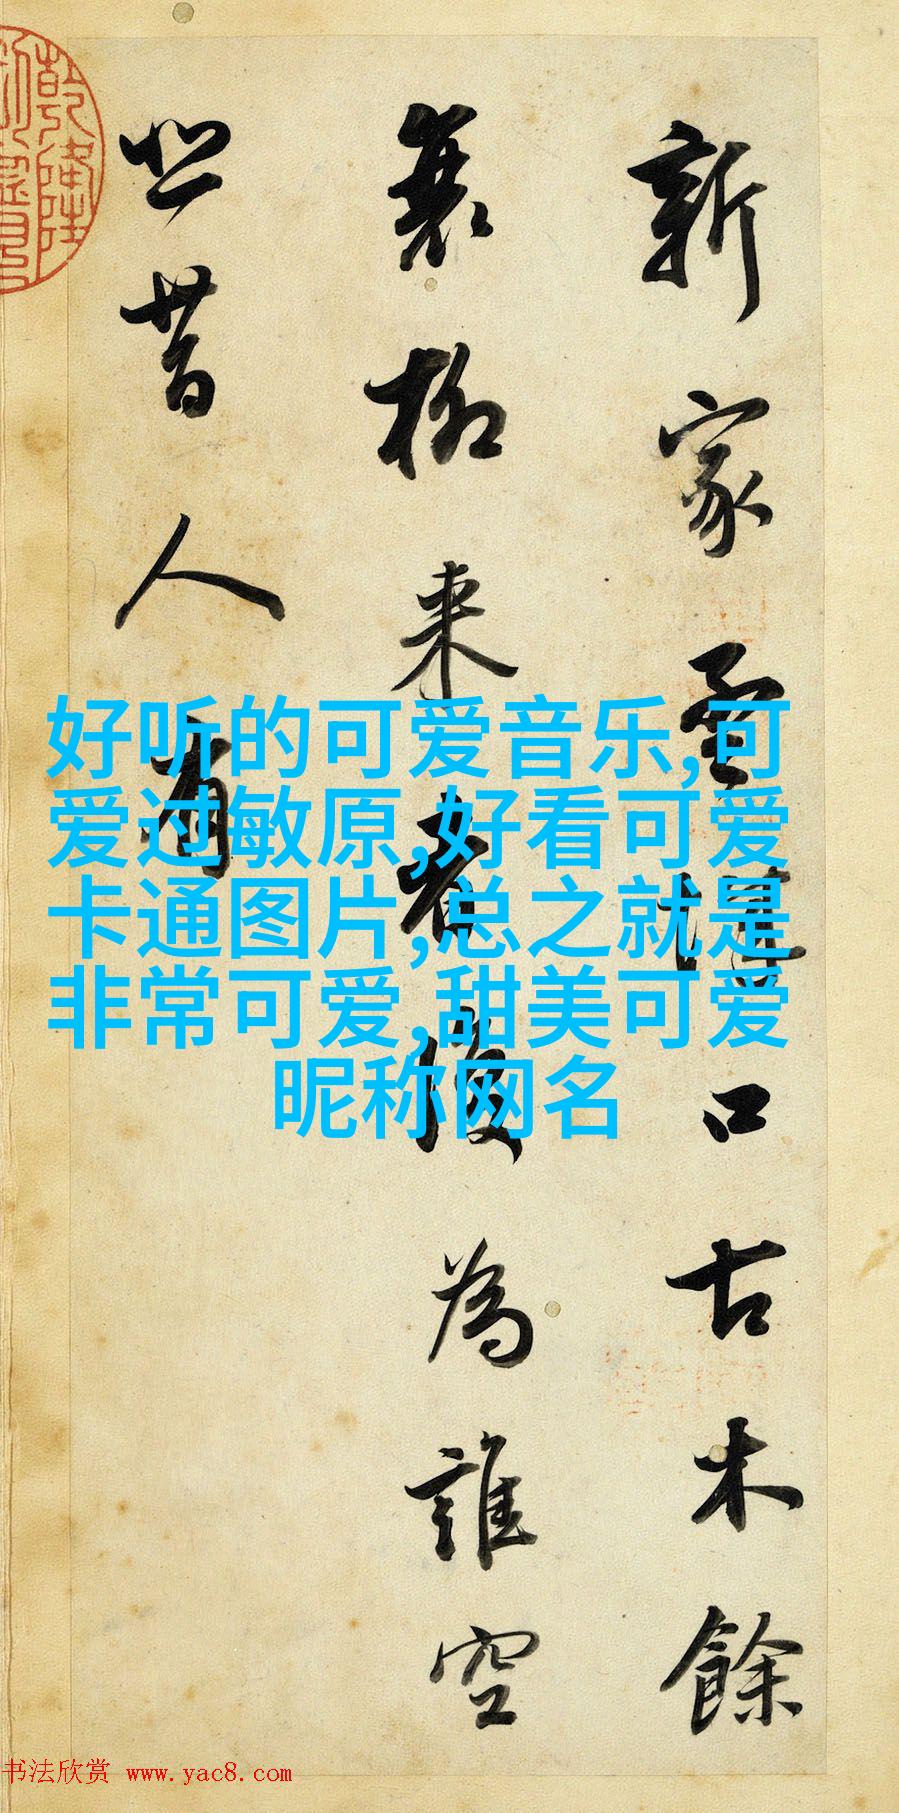 新家孟城口古木餘
衰柳来者復為誰空
悲昔人有
乾隆
好听的可爱音乐,可
爱过敏原,好看可爱
卡通图片,总之就是
非常可爱,甜美可爱
昵称网名
书法欣赏 www.yac8.com